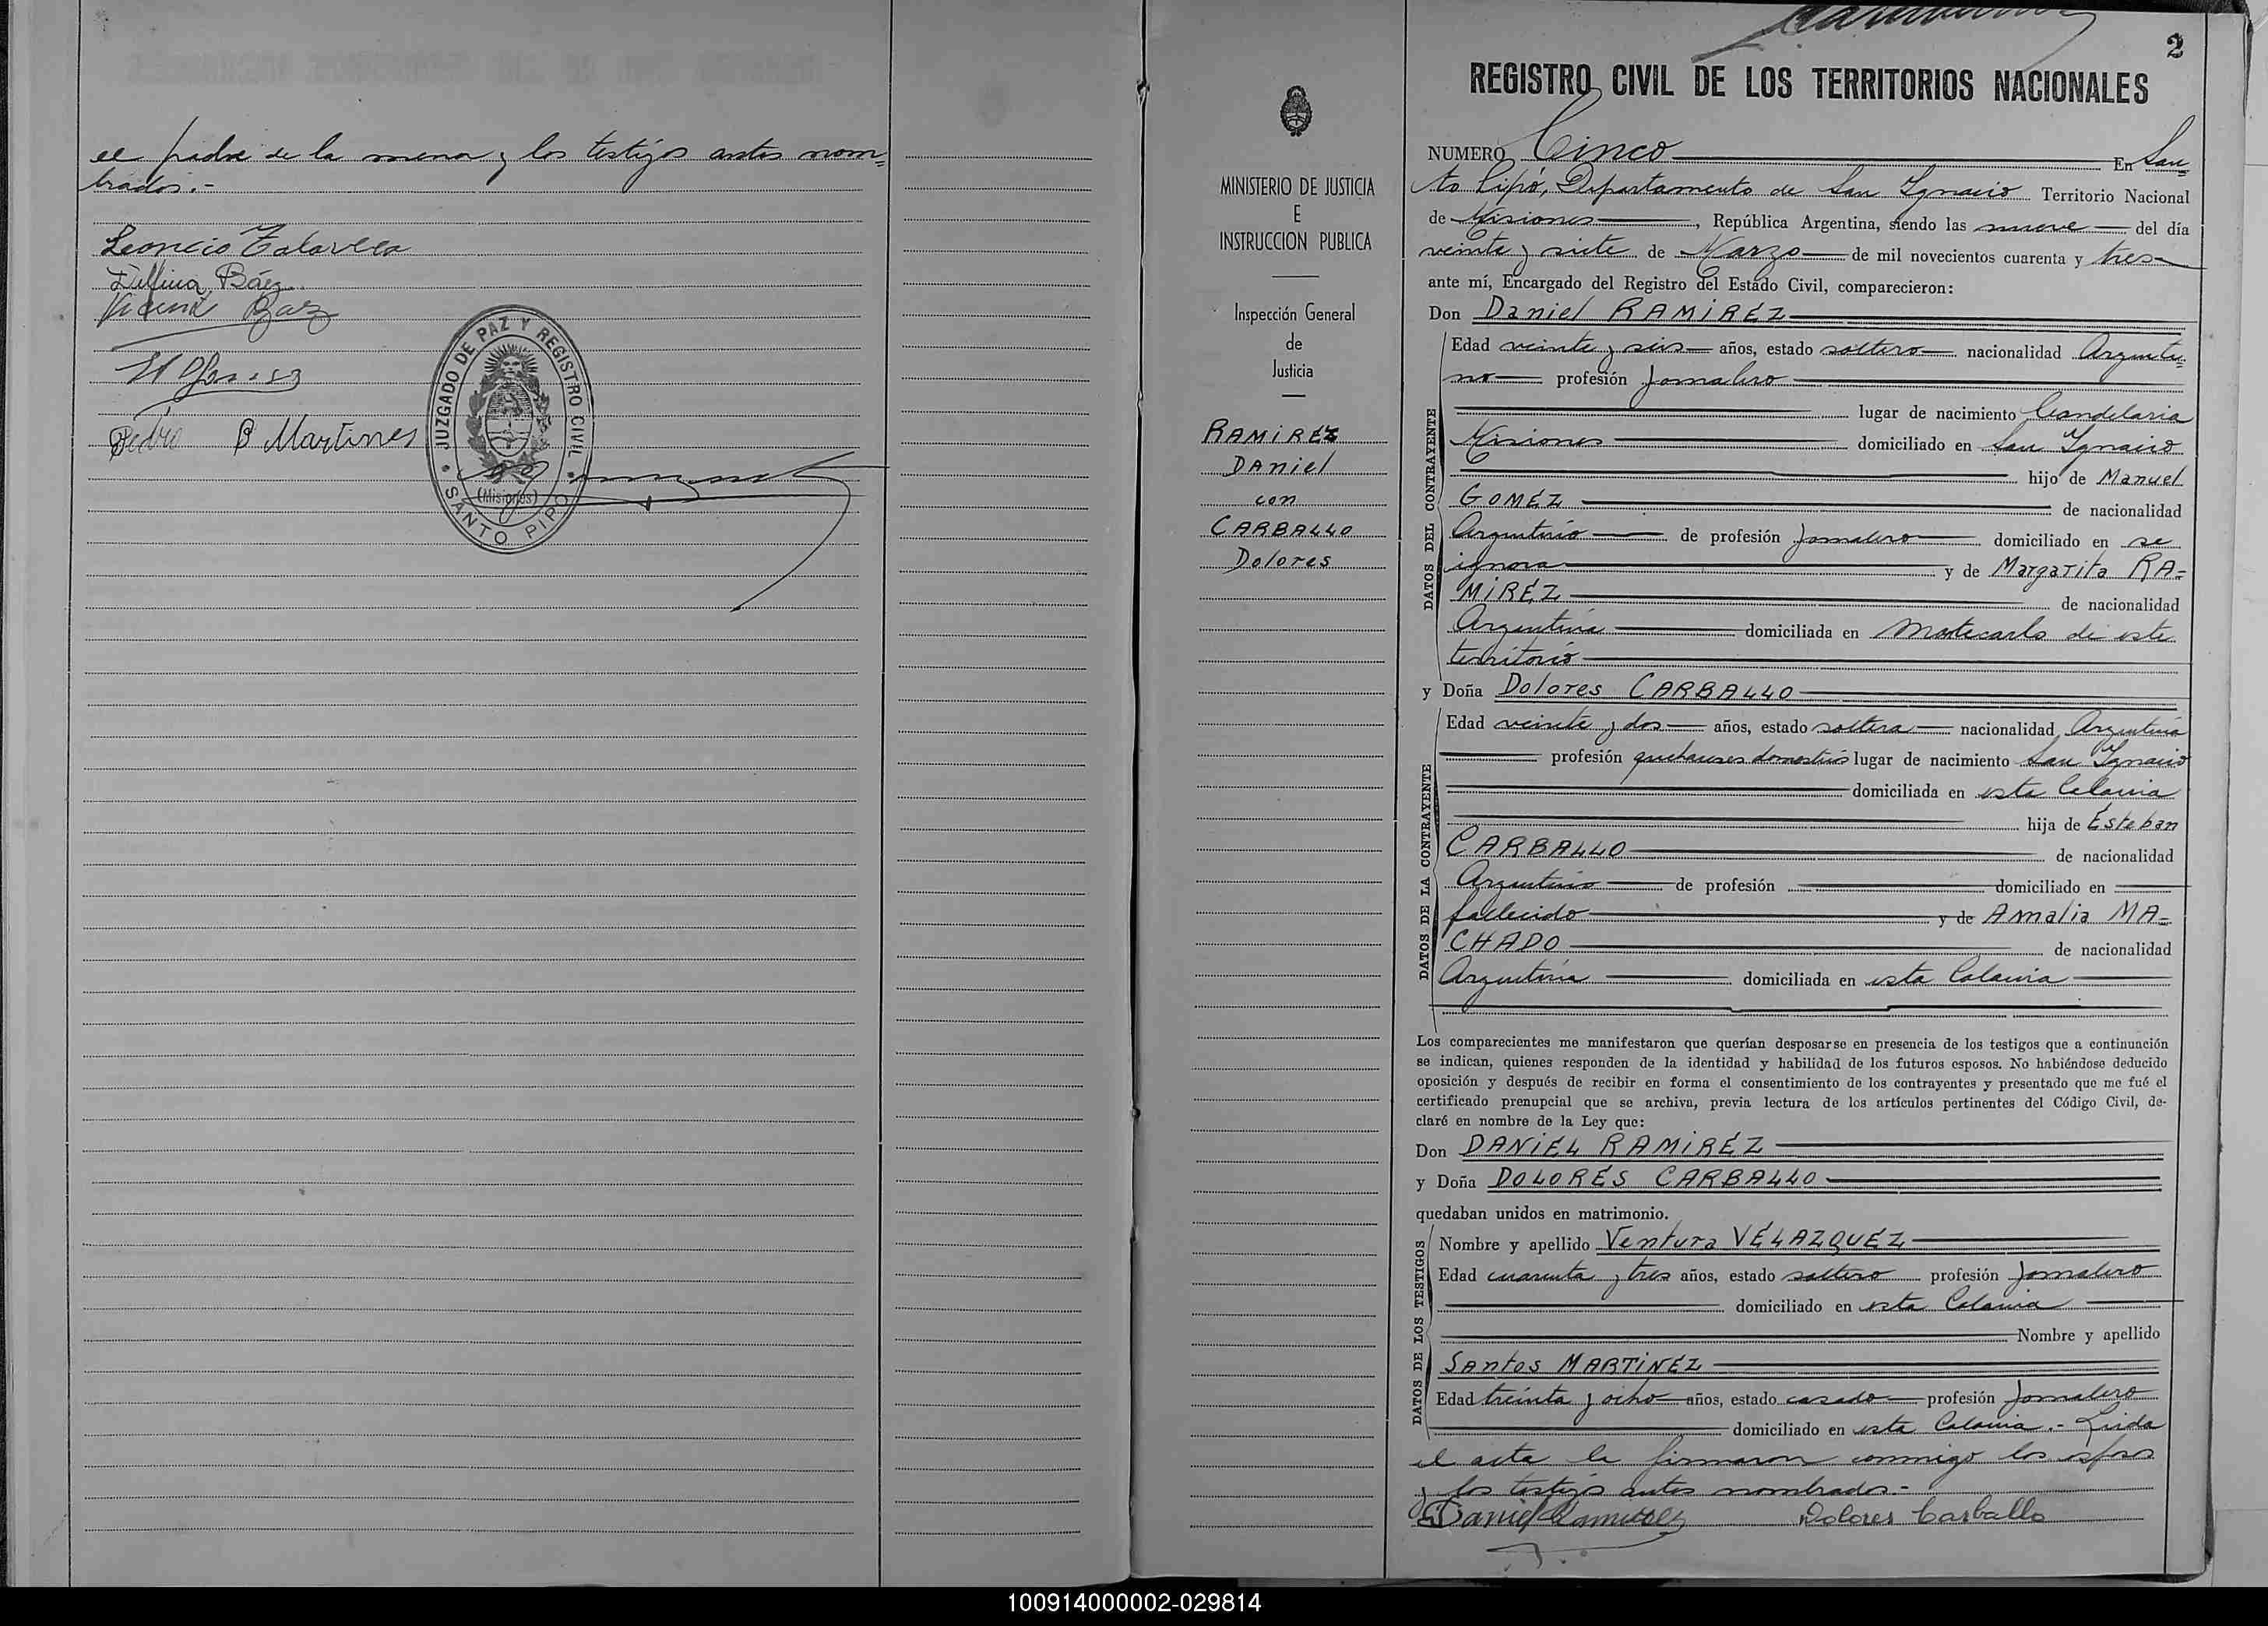 el padre de la menor y los testigos antes nom=
brados.-
Leoncio Talavera
Delfina Báez
Vicente Baz
Pedro B Martines
JUZGADO DE PAZ Y REGISTRO CIVIL
(Misiones)
SANTO PIPO
MINISTERIO DE JUSTICIA
E
INSTRUCCION PUBLICA
Inspección General
de
Justicia
RAMIREZ
Daniel
con
CARBALLO
Dolores
2
REGISTRO CIVIL DE LOS TERRITORIOS NACIONALES
NUMERO Cinco En San
to Pipó, Departamento de San Ignacio Territorio Nacional
de Misiones, República Argentina, siendo las nueve del día
veinte y siete de Marzo de mil novecientos cuarenta y tres
ante mí, Encargado del Registro del Estado Civil, comparecieron:
Don Daniel RAMIREZ
DATOS DEL CONTRAYENTE
Edad veinte y seis años, estado soltero nacionalidad Argenti=
no profesión Jornalero
lugar de nacimiento Candelaria
Misiones domiciliado en San Ignacio
hijo de Manuel
GOMEZ de nacionalidad
Argentino de profesión Jornalero domiciliado en se
ignora y de Margarita RA=
MIREZ de nacionalidad
Argentina domiciliada en Montecarlo de este
territorio
y Doña Dolores CARBALLO
DATOS DE LA CONTRAYENTE
Edad veinte y dos años, estado soltera nacionalidad Argentina
profesión quehaceres domesticos lugar de nacimiento San Ignacio
domiciliada en esta Colonia
hija de Esteban
CARBALLO de nacionalidad
Argentino de profesión domiciliado en
fallecido y de Amalia MA=
CHADO de nacionalidad
Argentina domiciliada en esta Colonia
Los comparecientes me manifestaron que querían desposarse en presencia de los testigos que a continuación
se indican, quienes responden de la identidad y habilidad de los futuros esposos. No habiéndose deducido
oposición y después de recibir en forma el consentimiento de los contrayentes y presentado que me fué el
certificado prenupcial que se archiva, previa lectura de los artículos pertinentes del Código Civil, de-
claré en nombre de la Ley que:
Don DANIEL RAMIREZ
y Doña DOLORES CARBALLO
quedaban unidos en matrimonio.
DATOS DE LOS TESTIGOS
Nombre y apellido Ventura VELAZQUEZ
Edad cuarenta y tres años, estado soltero profesión Jornalero
domiciliado en esta Colonia
Nombre y apellido
Santos MARTINEZ
Edad treinta y ocho años, estado casado profesión Jornalero
domiciliado en esta Colonia.- Leida
el acta la firmaron conmigo los esposos
y los testigos antes nombrados.-
Daniel Ramirez Dolores Carballo
100914000002-029814